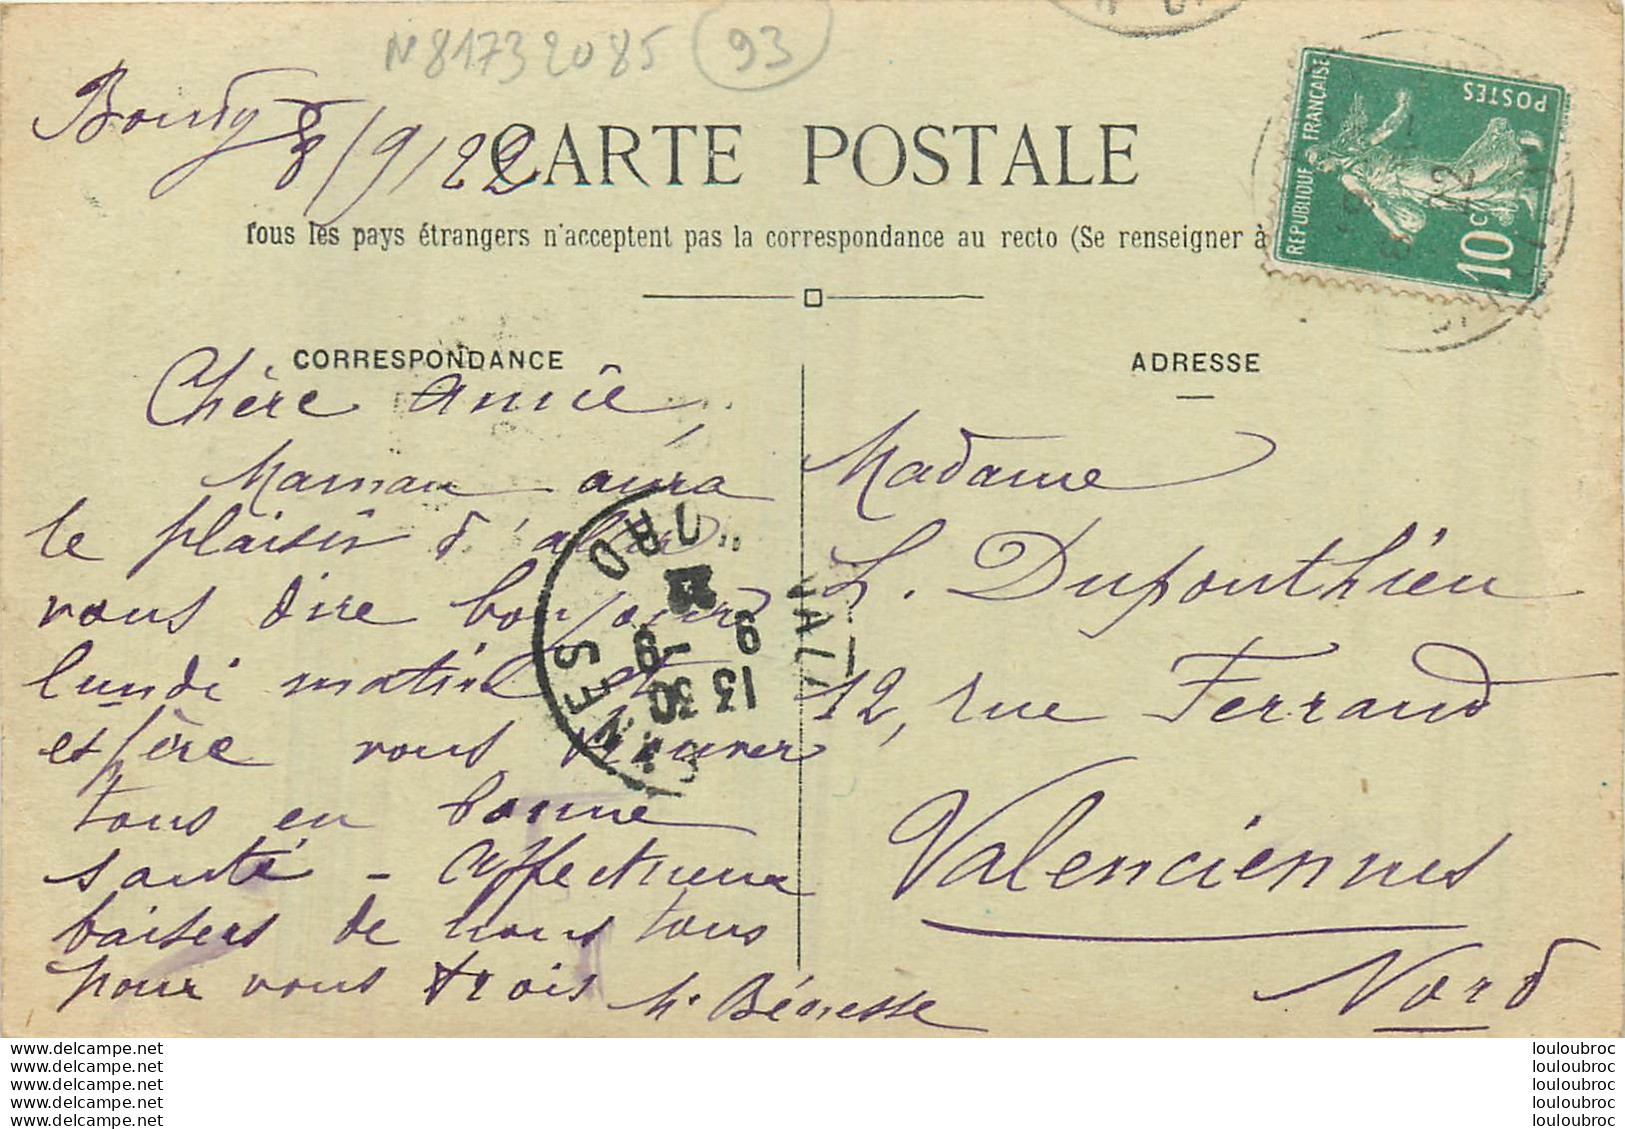 N 81732085 93
Bondy 8/9/22
CARTE POSTALE
Tous les pays étrangers n'acceptent pas la correspondance au recto (Se renseigner à
REPUBLIQUE FRANÇAISE
POSTES
10c
CORRESPONDANCE
Chère Amie,
Maman aura
le plaisir d'aller
vous dire bonjour
lundi matin et
espère vous trouver
tous en bonne
santé - Affectueux
baisers de nous tous
pour vous trois
ADRESSE
Madame
L. Duponthieu
12, rue Ferrand
Valenciennes
Nord
13 30
9 - 9
22
www.delcampe.net
www.delcampe.net
www.delcampe.net
www.delcampe.net
www.delcampe.net
louloubroc
louloubroc
louloubroc
louloubroc
louloubroc